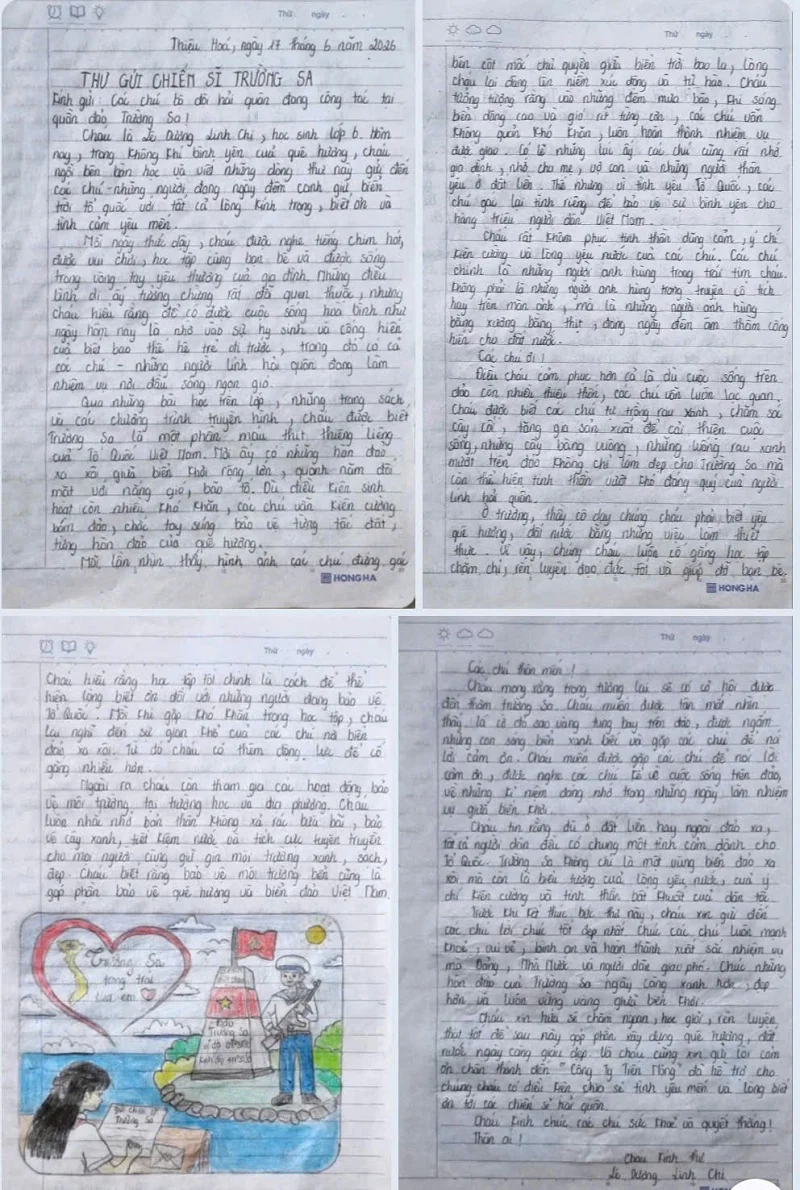 Thứ ngày
Thiệu Hoá, ngày 17 tháng 6 năm 2026
THƯ GỬI CHIẾN SĨ TRƯỜNG SA
Kính gửi: Các chú bộ đội hải quân đang công tác tại
quần đảo Trường Sa!
Cháu là Lê Dương Linh Chi, học sinh lớp 6. Hôm
nay, trong không khí bình yên của quê hương, cháu
ngồi bên bàn học và viết những dòng thư này gửi đến
các chú - những người đang ngày đêm canh giữ biển
trời tổ quốc với tất cả lòng kính trọng, biết ơn và
tình cảm yêu mến.
Mỗi ngày thức dậy, cháu được nghe tiếng chim hót,
được vui chơi, học tập cùng bạn bè và được sống
trong vòng tay yêu thương của gia đình. Những điều
bình dị ấy tưởng chừng rất đỗi quen thuộc, nhưng
cháu hiểu rằng để có được cuộc sống hoà bình như
ngày hôm nay là nhờ vào sự hy sinh và cống hiến
của biết bao thế hệ trẻ đi trước, trong đó có cả
các chú - những người lính hải quân đang làm
nhiệm vụ nơi đầu sóng ngọn gió.
Qua những bài học trên lớp, những trang sách
và các chương trình truyền hình, cháu được biết
Trường Sa là một phần máu thịt thiêng liêng
của Tổ Quốc Việt Nam. Nơi ấy có những hòn đảo
xa xôi giữa biển khơi rộng lớn, quanh năm đối
mặt với nắng gió, bão tố. Dù điều kiện sinh
hoạt còn nhiều khó khăn, các chú vẫn kiên cường
bám đảo, chắc tay súng bảo vệ từng tấc đất,
từng hòn đảo của quê hương.
Mỗi lần nhìn thấy hình ảnh các chú đứng gác
HONG HA
Thứ ngày
bên cột mốc chủ quyền giữa biển trời bao la, lòng
cháu lại dâng lên niềm xúc động và tự hào. Cháu
tưởng tượng rằng vào những đêm mưa bão, khi sóng
biển dâng cao và gió rít từng cơn, các chú vẫn
không quản khó khăn, luôn hoàn thành nhiệm vụ
được giao. Có lẽ những lúc ấy các chú cũng rất nhớ
gia đình, nhớ cha mẹ, vợ con và những người thân
yêu ở đất liền. Thế nhưng vì tình yêu Tổ Quốc, các
chú gác lại tình riêng để bảo vệ sự bình yên cho
hàng triệu người dân Việt Nam.
Cháu rất khâm phục tinh thần dũng cảm, ý chí
kiên cường và lòng yêu nước của các chú. Các chú
chính là những người anh hùng trong trái tim cháu.
Không phải là những người anh hùng trong truyện cổ tích
hay trên màn ảnh, mà là những người anh hùng
bằng xương bằng thịt, đang ngày đêm âm thầm cống
hiến cho đất nước.
Các chú ơi!
Điều cháu cảm phục hơn cả là dù cuộc sống trên
đảo còn nhiều thiếu thốn, các chú vẫn luôn lạc quan.
Cháu được biết các chú tự trồng rau xanh, chăm sóc
cây cối, tăng gia sản xuất để cải thiện cuộc
sống, những cây bàng vuông, những luống rau xanh
mướt trên đảo không chỉ làm đẹp cho Trường Sa mà
còn thể hiện tinh thần vượt khó đáng quý của người
lính hải quân.
Ở trường, thầy cô dạy chúng cháu phải biết yêu
quê hương, đất nước bằng những việc làm thiết
thực. Vì vậy, chúng cháu luôn cố gắng học tập
chăm chỉ, rèn luyện đạo đức tốt và giúp đỡ bạn bè.
HONG HA
Thứ ngày
Cháu hiểu rằng học tập tốt chính là cách để thể
hiện lòng biết ơn đối với những người đang bảo vệ
Tổ Quốc. Mỗi khi gặp khó khăn trong học tập, cháu
lại nghĩ đến sự gian khổ của các chú nơi biển
đảo xa xôi. Từ đó cháu có thêm động lực để cố
gắng nhiều hơn.
Ngoài ra cháu còn tham gia các hoạt động bảo
vệ môi trường tại trường học và địa phương. Cháu
luôn nhắc nhở bản thân không xả rác bừa bãi, bảo
vệ cây xanh, tiết kiệm nước và tích cực tuyên truyền
cho mọi người cùng giữ gìn môi trường xanh, sạch,
đẹp. Cháu biết rằng bảo vệ môi trường biển cũng là
góp phần bảo vệ quê hương và biển đảo Việt Nam.
Trường Sa
trong trái
tim em
Đảo
Trường Sa
Gửi chú ở
Trường Sa
Thứ ngày
Các chú thân mến!
Cháu mong rằng trong tương lai sẽ có cơ hội được
đến thăm Trường Sa. Cháu muốn được tận mắt nhìn
thấy lá cờ đỏ sao vàng tung bay trên đảo, được ngắm
những con sóng biển xanh biếc và gặp các chú để nói
lời cảm ơn. Cháu muốn được gặp các chú để nói lời
cảm ơn, được nghe các chú kể về cuộc sống trên đảo,
về những kỉ niệm đáng nhớ trong những ngày làm nhiệm
vụ giữa biển khơi.
Cháu tin rằng dù ở đất liền hay ngoài đảo xa,
tất cả người dân đều có chung một tình cảm dành cho
Tổ Quốc. Trường Sa không chỉ là một vùng biển đảo xa
xôi mà còn là biểu tượng của lòng yêu nước, của ý
chí kiên cường và tinh thần bất khuất của dân tộc.
Trước khi kết thúc bức thư này, cháu xin gửi đến
các chú lời chúc tốt đẹp nhất. Chúc các chú luôn mạnh
khoẻ, vui vẻ, bình an và hoàn thành xuất sắc nhiệm vụ
mà Đảng, Nhà Nước và người dân giao phó. Chúc những
hòn đảo của Trường Sa ngày càng xanh hơn, đẹp
hơn và luôn vững vàng giữa biển khơi.
Cháu xin hứa sẽ chăm ngoan, học giỏi, rèn luyện
thật tốt để sau này góp phần xây dựng quê hương, đất
nước ngày càng giàu đẹp. Và cháu cũng xin gửi lời cảm
ơn chân thành đến "Công Ty Tiến Nông" đã hỗ trợ cho
chúng cháu có điều kiện chia sẻ tình yêu mến và lòng biết
ơn tới các chiến sĩ hải quân.
Cháu kính chúc các chú sức khoẻ và quyết thắng!
Thân ái!
Cháu kính thư
Lê Dương Linh Chi
HONG HA